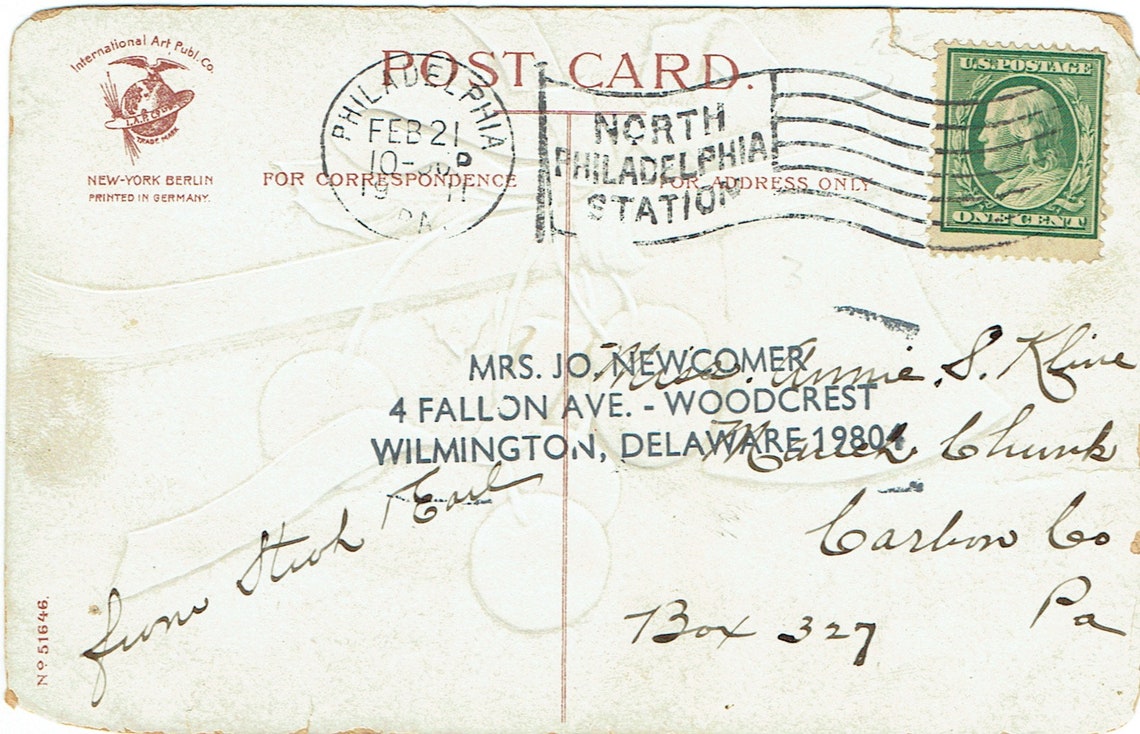 International Art Publ. Co.
I.A.P.Co.
TRADE MARK
NEW-YORK BERLIN
PRINTED IN GERMANY.
POST CARD.
FOR CORRESPONDENCE
FOR ADDRESS ONLY
PHILADELPHIA
FEB 21
10-30P
1911
PA
NORTH
PHILADELPHIA
STATION
U.S. POSTAGE
ONE CENT
MRS. JO. NEWCOMER
4 FALLON AVE. - WOODCREST
WILMINGTON, DELAWARE 19804
Mrs. Annie. S. Kline
Mauch Chunk
Carbon Co
Pa
Box 327
from
Earl
No 51646.